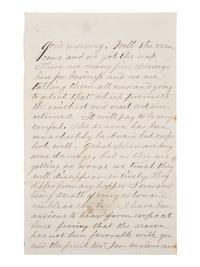 Good morning. Well the rain
came and we got the wup
There are many fine openings
here for business and we are
talking them all over and going
to select that which promises
the quickest and most certain
returns. It will pay to be very
careful. The season has been
remarkably backward but crops
look well. Grasshoppers are doing
some damage, but as they are
getting no worse we trust they
will disappear entirely. They
differ from any hopper I ever saw
being small of every color and
nimble as can be. I have been
anxious to hear from crops at
home fearing that the season
has not been favorable with you
and the fruit too. I am anxious